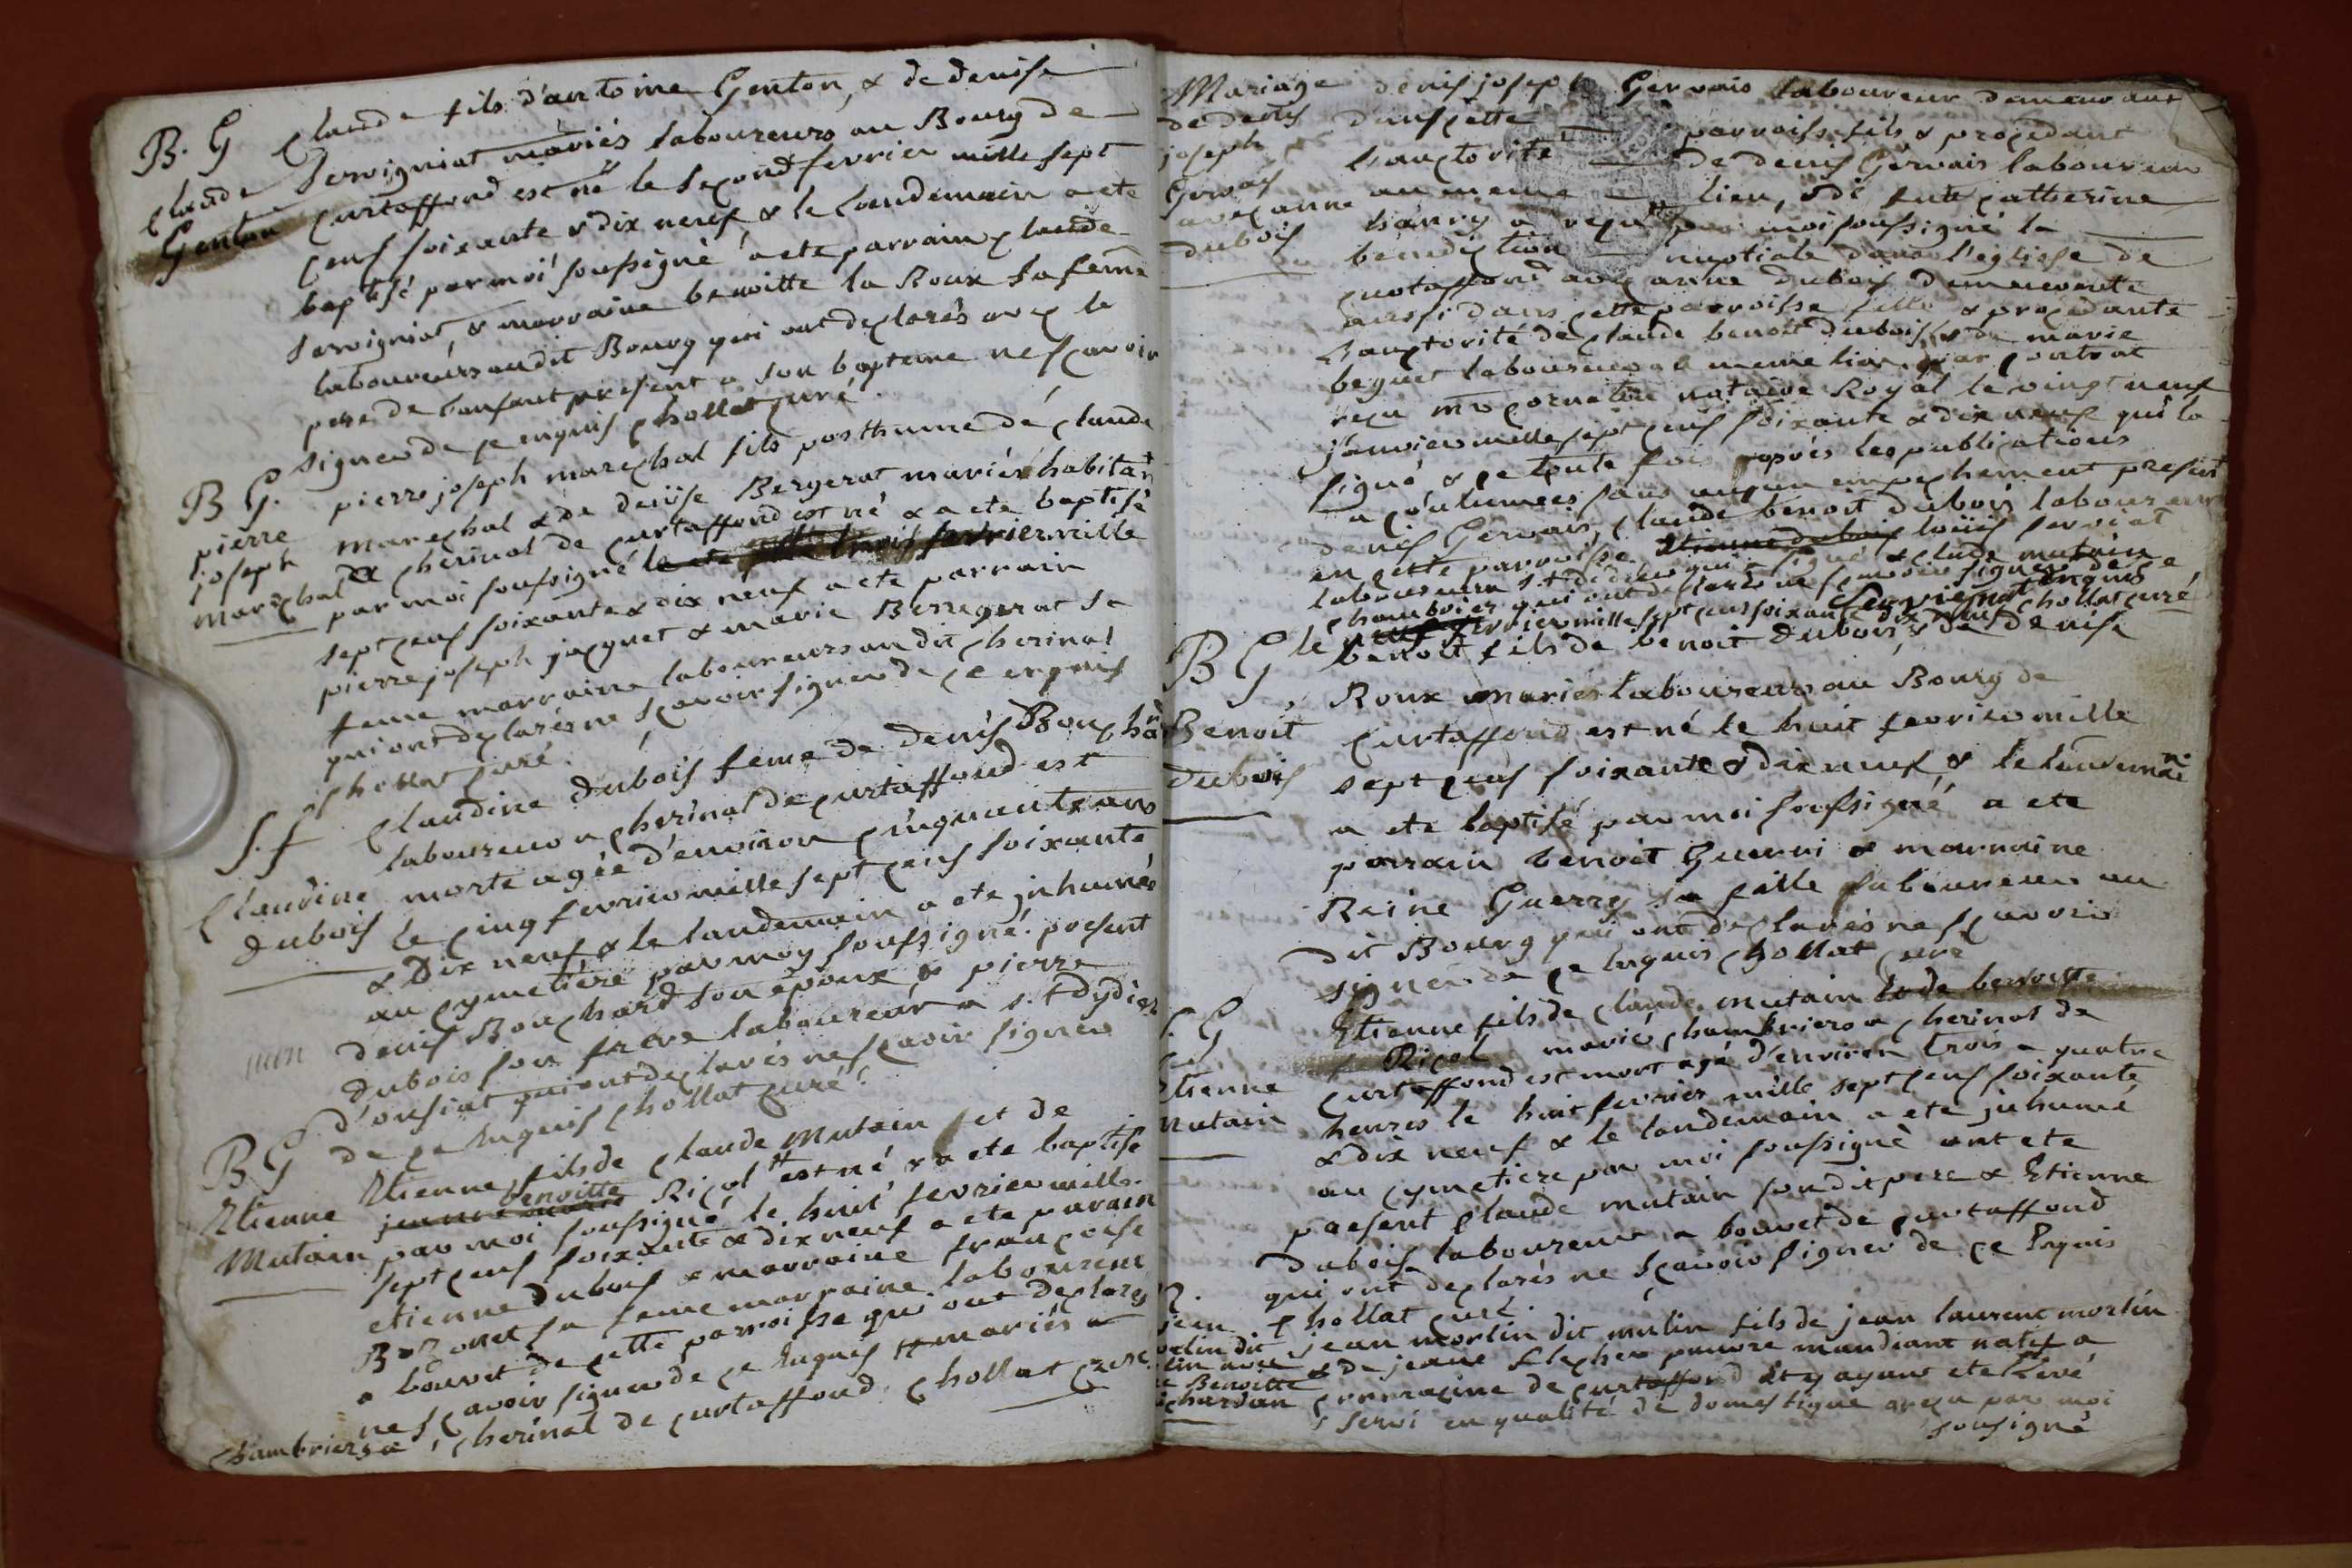 B. G Claude fils d'antoine Genton, & de denise
Claude Servigniat mariés laboureurs au Bourg de
Genton Curtaffond est né le second fevrier mille sept
cens soixante & dix neuf & le landemain a ete
baptisé par moi soussigné a ete parrain claude
servigniat, & marraine benoitte la Roux sa feme
laboureurs audit Bourg qui ont declarés avec le
pere de l'enfant present a son bapteme ne scavoir
signer de ce enquis chollat curé.
B G. pierre joseph marechal fils posthume de claude
pierre
joseph marechal & de denise Bergerat mariés habitan
marechal a cherinal de curtaffond est né & a ete baptisé
par moi soussigné le fevrier mille
sept cens soixante & dix neuf a ete parrain
pierre joseph jacquet & marie Beregerat sa
feme marraine laboureurs au dit cherinal
qui ont declarés ne scavoir signer de ce enquis
chollat curé.
S. f Claudine dubois feme de denis Bouchard
laboureur a cherinal de curtaffond est
Claudine morte agée d'environ cinquante ans
dubois le cinq fevrier mille sept cens soixante
& Dix neuf & le landemain a ete inhumée
au cymetiere par moy soussigné. present
denis Bouchard son epoux & pierre
dubois son frere laboureur a s.t dydier
d'oussiat qui ont declarés ne scavoir signer
de ce enquis chollat curé.
B G
Etienne Etienne fils de claude Mutain et de
benoitte Ricol est né & a ete baptisé
Mutain par moi soussigné le huit fevrier mille
sept cens soixante & dix neuf a ete parain
etienne dubois & marraine françoise
sa feme marraine laboureur
a bouvet de cette parroisse qui ont declarés
ne scavoir signer de ce enquis mariés
chambriers a cherinal de curtaffond. chollat curé
Mariage denis joseph Gervais laboureur demeurant
de denis dans cette parroisse fils & procedant
joseph l'auctorité de denis Gervais laboureur
Gervais au meme lieu, & de fute catherine
avec anne hanry a reçu par moi soussigné la
dubois benediction nuptiale dans l'eglisse de
curtaffond avec anne dubois demeurante
aussi dans cette parroisse fille & procedante
l'auctorité de claude benoit dubois & de marie
beguet laboureur a le meme lieu par contrat
reçu notaire Royal le vingt neuf
janvier mille sept cens soixante & dix neuf qui l'a
signé & ce toute fois après les publications
acoutumees sans aucun empechement present
denis Gervais, claude benoit dubois laboureurs
en cette parroisse, etienne dubois loüis serviat
laboureur a s.t didier qui a signé & claude mutain
chambrier qui ont declarés ne scavoir signer de ce enquis
le fevrier mille sept cens soixante dix neuf chollat curé
B G benoit fils de benoit dubois & de denise
Roux mariés laboureurs au Bourg de
Benoit curtaffond est né le huit fevrier mille
dubois sept cens soixante & dix neuf & le landemain
a ete baptisé par moi soussigné a ete
parrain benoit Guerri & marraine
Reine Guerry sa fille laboureur au
dit Bourg qui ont declarés ne scavoir
signer de ce enquis chollat curé
Etienne fils de claude mutain & de benoitte
Ricol mariés chambriers a cherinal de
Etienne curtaffond est mort agé d'environ trois a quatre
Mutain heures le huit fevrier mille sept cens soixante
& dix neuf & le landemain a ete inhumé
au cymetiere par moi soussigné ont ete
present claude mutain son dit pere & Etienne
dubois laboureur a bouvet de curtaffond
qui ont declarés ne scavoir signer de ce Enquis
chollat curé.
jean jean morlin dit mulin fils de jean laurent morlin
& de jeane pauvre mandiant natif a
Benoitte de curtaffond & y ayant ete levé
servi en qualité de domestique areçu par moi
sousigné